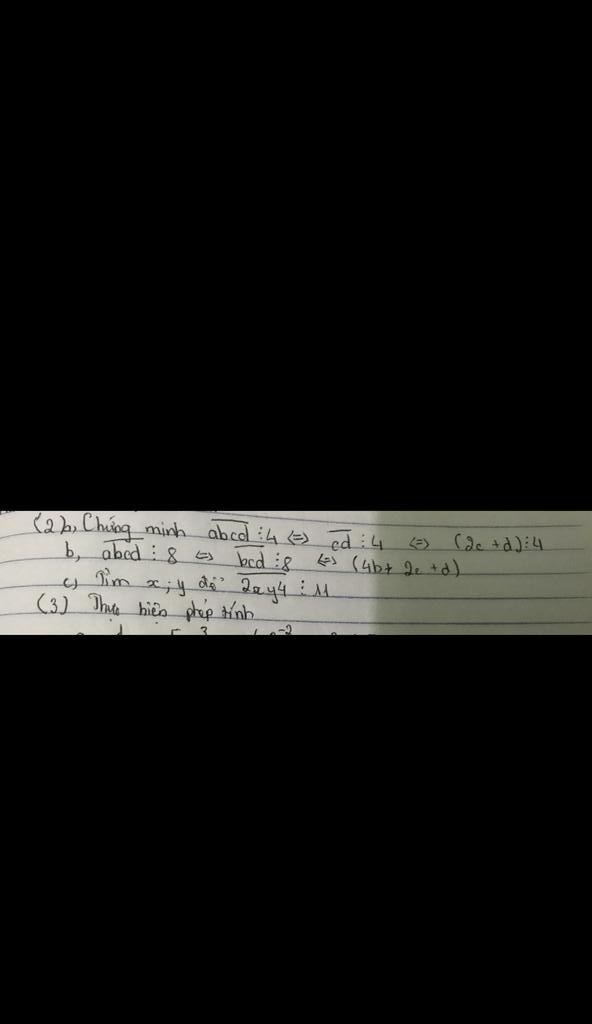 (2) b, Chứng minh abcd ⋮ 4 <=> cd ⋮ 4 <=> (2c + d) ⋮ 4
b, abcd ⋮ 8 <=> bcd ⋮ 8 <=> (4b + 2c + d)
c) Tìm x, y để 2xy4 ⋮ 11
(3) Thực hiện phép tính